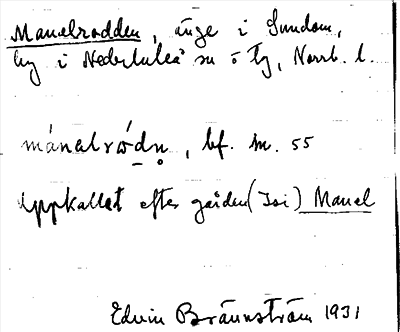 Manelrodden, änge i Sundom,
by i Nederluleå sn ö tg, Norrb. l.
mánalrὼdn̥, bf. m. 55
Uppkallat efter gården (Isi) Manel
Edvin Brännström 1931